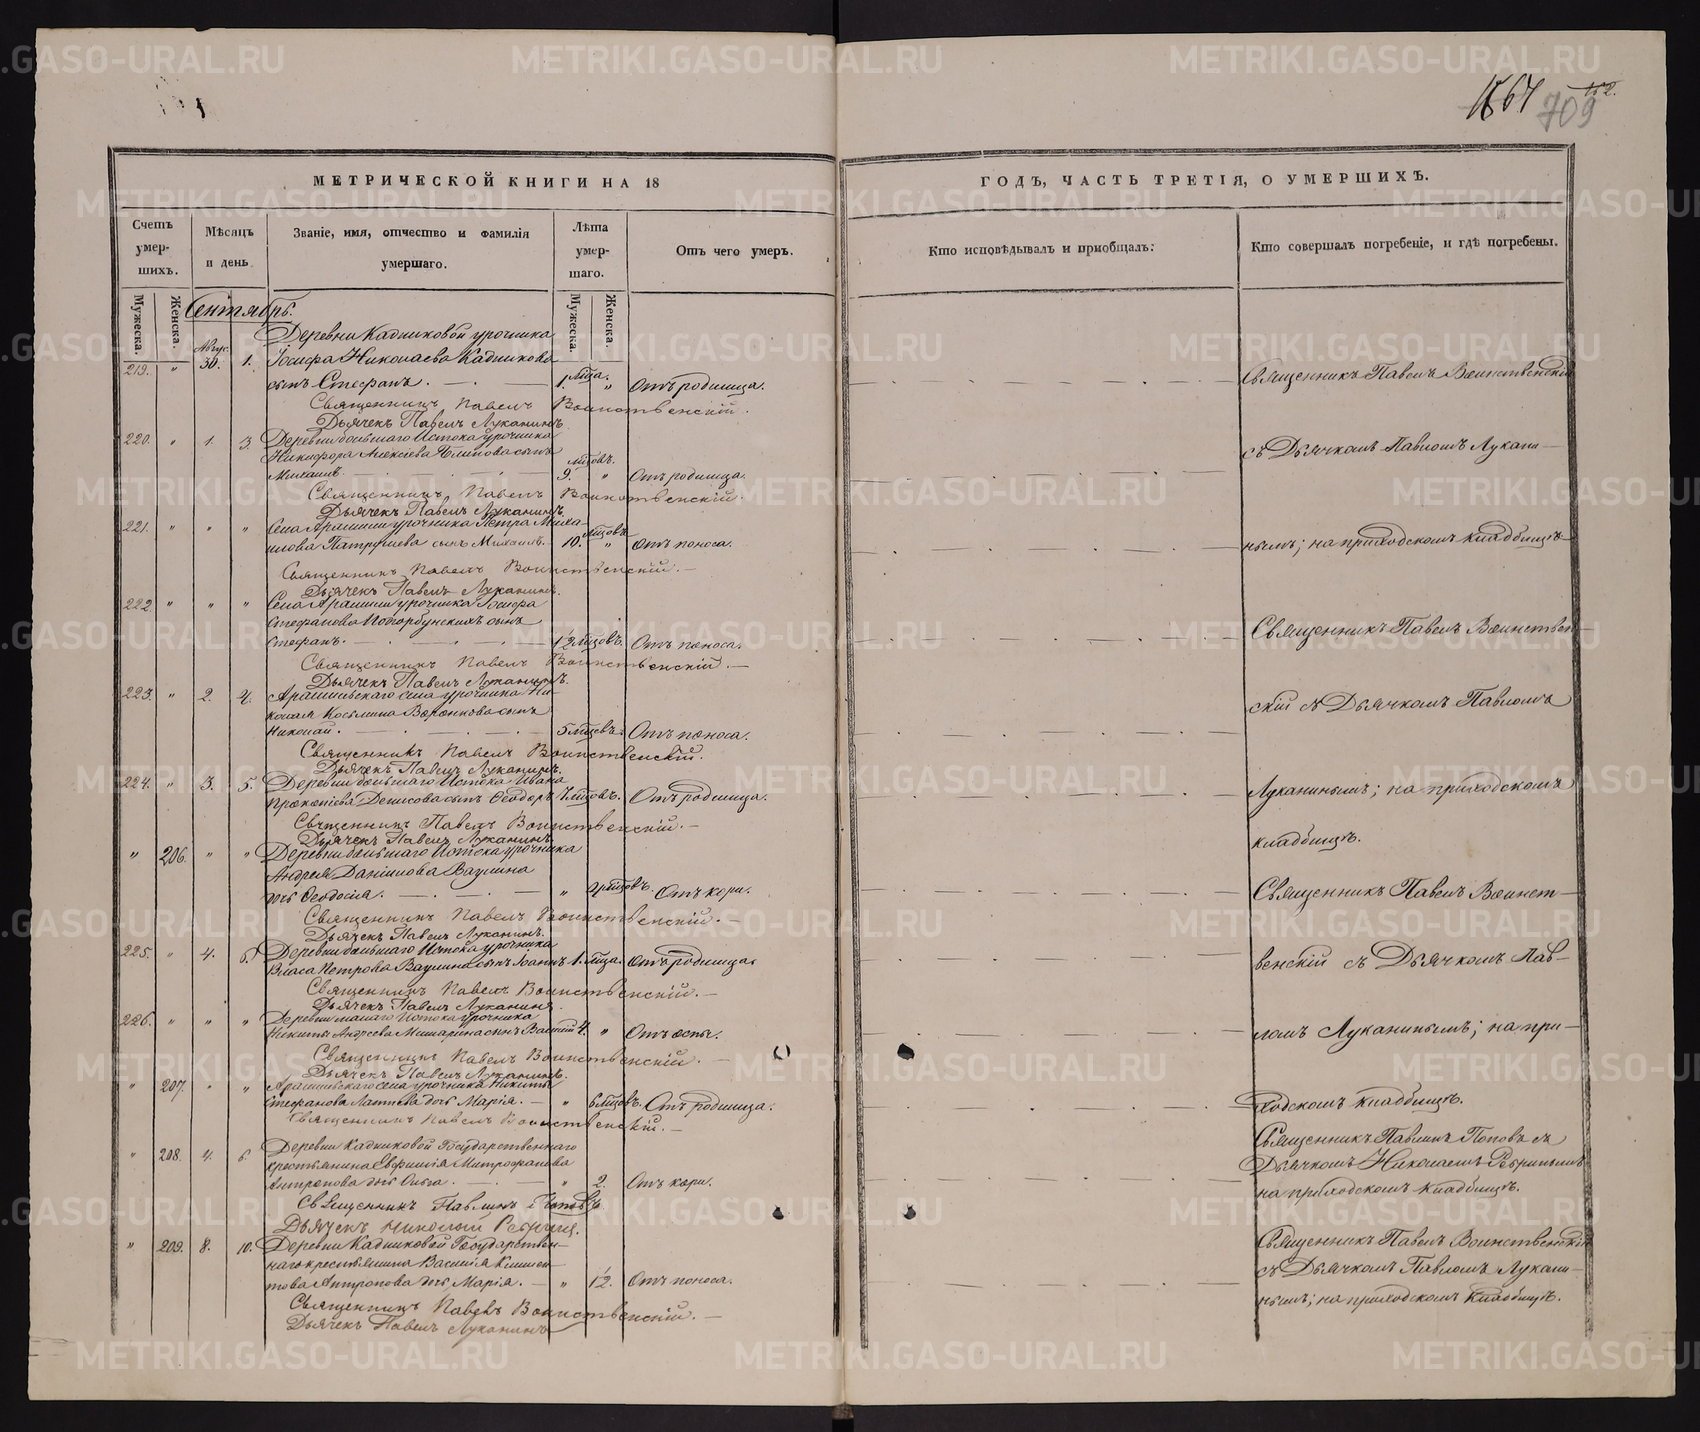 1864
709
152.
МЕТРИЧЕСКОЙ КНИГИ НА 18
ГОДЪ, ЧАСТЬ ТРЕТІЯ, О УМЕРШИХЪ.
Счетъ умер-шихъ.
Мѣсяцъ и день
Званіе, имя, отчество и фамилія умершаго.
Лѣта умер-шаго.
Отъ чего умеръ.
Кто исповѣдывалъ и пріобщалъ:
Кто совершалъ погребеніе, и гдѣ погребены.
Мужеска.
Женска.
Мужеска.
Женска.
Сентябрь.
Деревни Кадниковой урочника
219. " Авгус. 30. 1. Іосифа Николаева Кадникова
сынъ Стефанъ. 1. мѣца. " Отъ родимца.
Священникъ Павелъ Воинственскій.
Дьячекъ Павелъ Луканинъ.
220. " 1. 3. Деревни большаго Истока урочника
Никифора Алексѣева сынъ
Михаилъ 9. мѣцовъ. " Отъ родимца.
Священникъ Павелъ Воинственскій.
Дьячекъ Павелъ Луканинъ.
221. " " " Села Арамили урочника Петра Миха-
илова Патрушева сынъ Михаилъ. 10. мѣцовъ. " Отъ поноса.
Священникъ Павелъ Воинственскій.
Дьячекъ Павелъ Луканинъ.
222. " " " Села Арамили урочника Іосифа
Стефанова сынъ
Стефанъ. мѣцовъ. Отъ поноса.
Священникъ Павелъ Воинственскій.
Дьячекъ Павелъ Луканинъ.
223. " 2. 4. Арамильскаго села урочника Ни-
колая Косьмина сынъ
Николай. 5 мѣцевъ. Отъ поноса.
Священникъ Павелъ Воинственскій.
Дьячекъ Павелъ Луканинъ.
224. " 3. 5. Деревни большаго Истока Ивана
Прокопіева Денисова сынъ Ѳеодоръ мѣцовъ. Отъ родимца.
Священникъ Павелъ Воинственскій.
Дьячекъ Павелъ Луканинъ.
" 206. " " Деревни большаго Истока урочника
Андрея Даніилова Ваулина
дочь Ѳеодосія. " мѣцовъ. Отъ кори.
Священникъ Павелъ Воинственскій.
Дьячекъ Павелъ Луканинъ.
225. " 4. 6. Деревни большаго Истока урочника
Власа Петрова Ваулина сынъ Іоаннъ 1. мѣца. Отъ родимца.
Священникъ Павелъ Воинственскій.
Дьячекъ Павелъ Луканинъ.
226. " " " Деревни малаго Истока урочника
Никиты Андреева сынъ Василій 4. " Отъ оспы.
Священникъ Павелъ Воинственскій.
Дьячекъ Павелъ Луканинъ.
" 207. " " Арамильскаго села урочника Никиты
Стефанова дочь Марія. " 6 мѣцовъ. Отъ родимца.
Священникъ Павелъ Воинственскій.
" 208. 4. 6. Деревни Кадниковой Государственнаго
крестьянина Евфимія Митрофанова
Антропова дочь Ольга. " 2. Отъ кори.
Священникъ Павлинъ Поповъ.
Дьячекъ Николай
" 209. 8. 10. Деревни Кадниковой Государствен-
наго крестьянина Василія Климен-
това Антропова дочь Марія. " Отъ поноса.
Священникъ Павелъ Воинственскій.
Дьячекъ Павелъ Луканинъ
Священникъ Павелъ Воинственскій
съ Дьячкомъ Павломъ Лукани-
нымъ; на приходскомъ кладбищѣ
Священникъ Павелъ Воинствен-
скій съ Дьячкомъ Павломъ
Луканинымъ; на приходскомъ
кладбищѣ.
Священникъ Павелъ Воинст-
венскій съ Дьячкомъ Пав-
ломъ Луканинымъ; на при-
ходскомъ кладбищѣ.
Священникъ Павлинъ Поповъ съ
Дьячкомъ Николаемъ
на приходскомъ кладбищѣ.
Священникъ Павелъ Воинственскій
съ Дьячкомъ Павломъ Лукани-
нымъ; на приходскомъ кладбищѣ.
METRIKI.GASO-URAL.RU